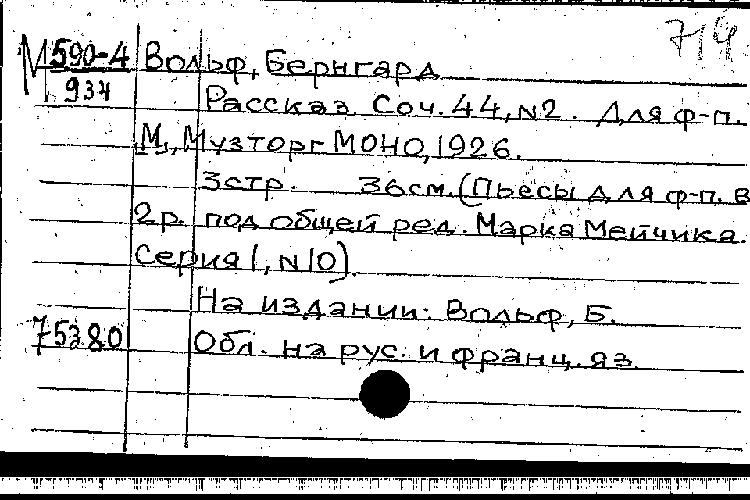 714
М 590-4 Вольф, Бернгард
934 Рассказ. Соч. 44, N2. Для ф-п.
М., Музторг МОНО, 1926.
3стр. 36см. (Пьесы для ф-п. в
2р. под общей ред. Марка Мейчика.
Серия I, N10).
На издании: Вольф, Б.
75380 Обл. на рус. и франц. яз.